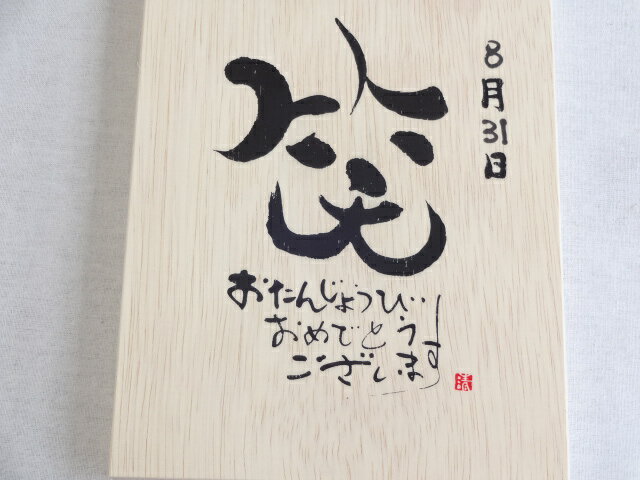 8月31日
笑
おたんじょうび
おめでとう
ございます